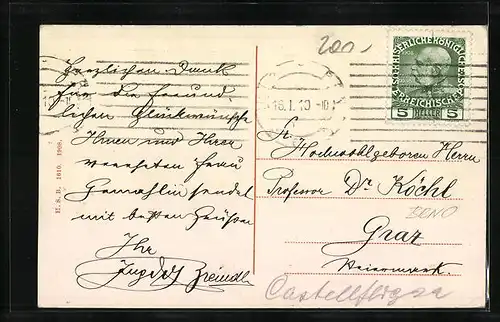 Herzlichen Dank
für die freund-
lichen Glückwünsche
Ihnen und Ihrer
verehrten Frau
Gemahlin sendet
mit besten Grüßen
Ihr
H. S. B. 1810. 1908.
200.-
16. I. 10
KAISERLICHE KÖNIGLICHE
ÖSTERREICHISCHE
5 HELLER 5
Sr.
Hochwohlgeboren Herrn
Professor Dr. Köchl
Graz
Steiermark.